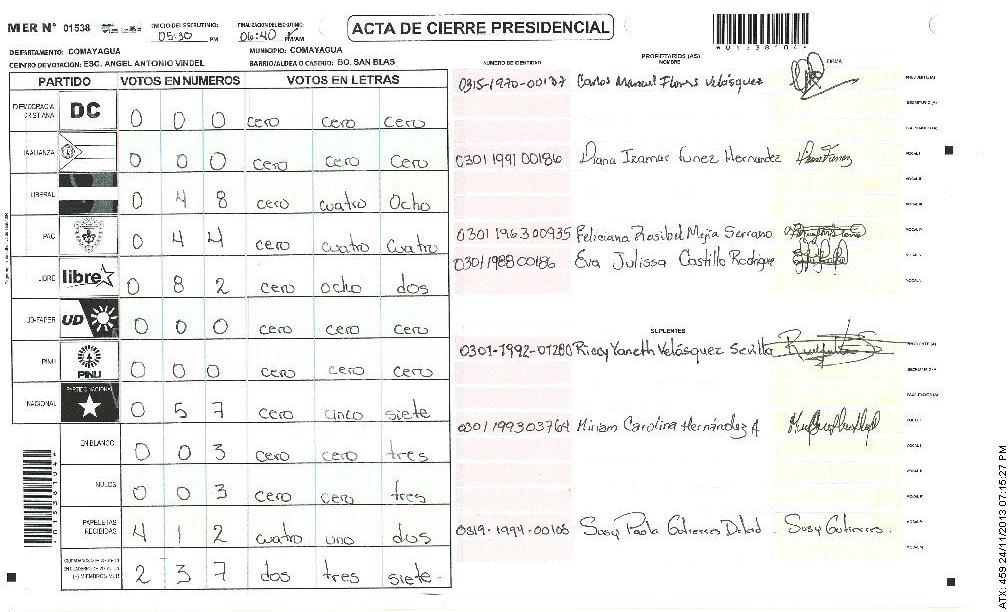 MER N° 01538 INICIO DEL ESCRUTINIO: 05:30 PM FINALIZACION DEL ESCRUTINIO: 06:40 PM/AM ACTA DE CIERRE PRESIDENCIAL
DEPARTAMENTO: COMAYAGUA MUNICIPIO: COMAYAGUA
CENTRO DE VOTACION: ESC. ANGEL ANTONIO VINDEL BARRIO/ALDEA O CASERIO: BO. SAN BLAS
PARTIDO VOTOS EN NUMEROS VOTOS EN LETRAS
DEMOCRACIA CRISTIANA DC 0 0 0 cero cero cero
LA ALIANZA 0 0 0 cero cero cero
LIBERAL 0 4 8 cero cuatro Ocho
PAC 0 4 4 cero cuatro cuatro
LIBRE libre 0 8 2 cero ocho dos
UD-FAPER UD 0 0 0 cero cero cero
PINU PINU 0 0 0 cero cero cero
NACIONAL PARTIDO NACIONAL 0 5 7 cero cinco siete
EN BLANCO 0 0 3 cero cero tres
NULOS 0 0 3 cero cero tres
PAPELETAS RECIBIDAS 4 1 2 cuatro uno dos
(+) MIEMBROS MER 2 3 7 dos tres siete
NUMERO DE IDENTIDAD PROPIETARIOS (AS) NOMBRE FIRMA
0315-1970-00137 Carlos Manuel Flores Velásquez
0301 1991 00186 Diana Izamar Funez Hernandez
0301 1963 00935 Feliciana Rosibel Mejia Serrano
0301 1988 00186 Eva Julissa Castillo Rodrigue
SUPLENTES
0301-1992-01280 Riccy Yaneth Velásquez Sevilla
0301 1993 03764 Miriam Carolina Hernández A
0319-1994-00105 Susy Paola Gutierres Susy Gutierres.
ATX: 459 24/11/2013 07:15:27 PM